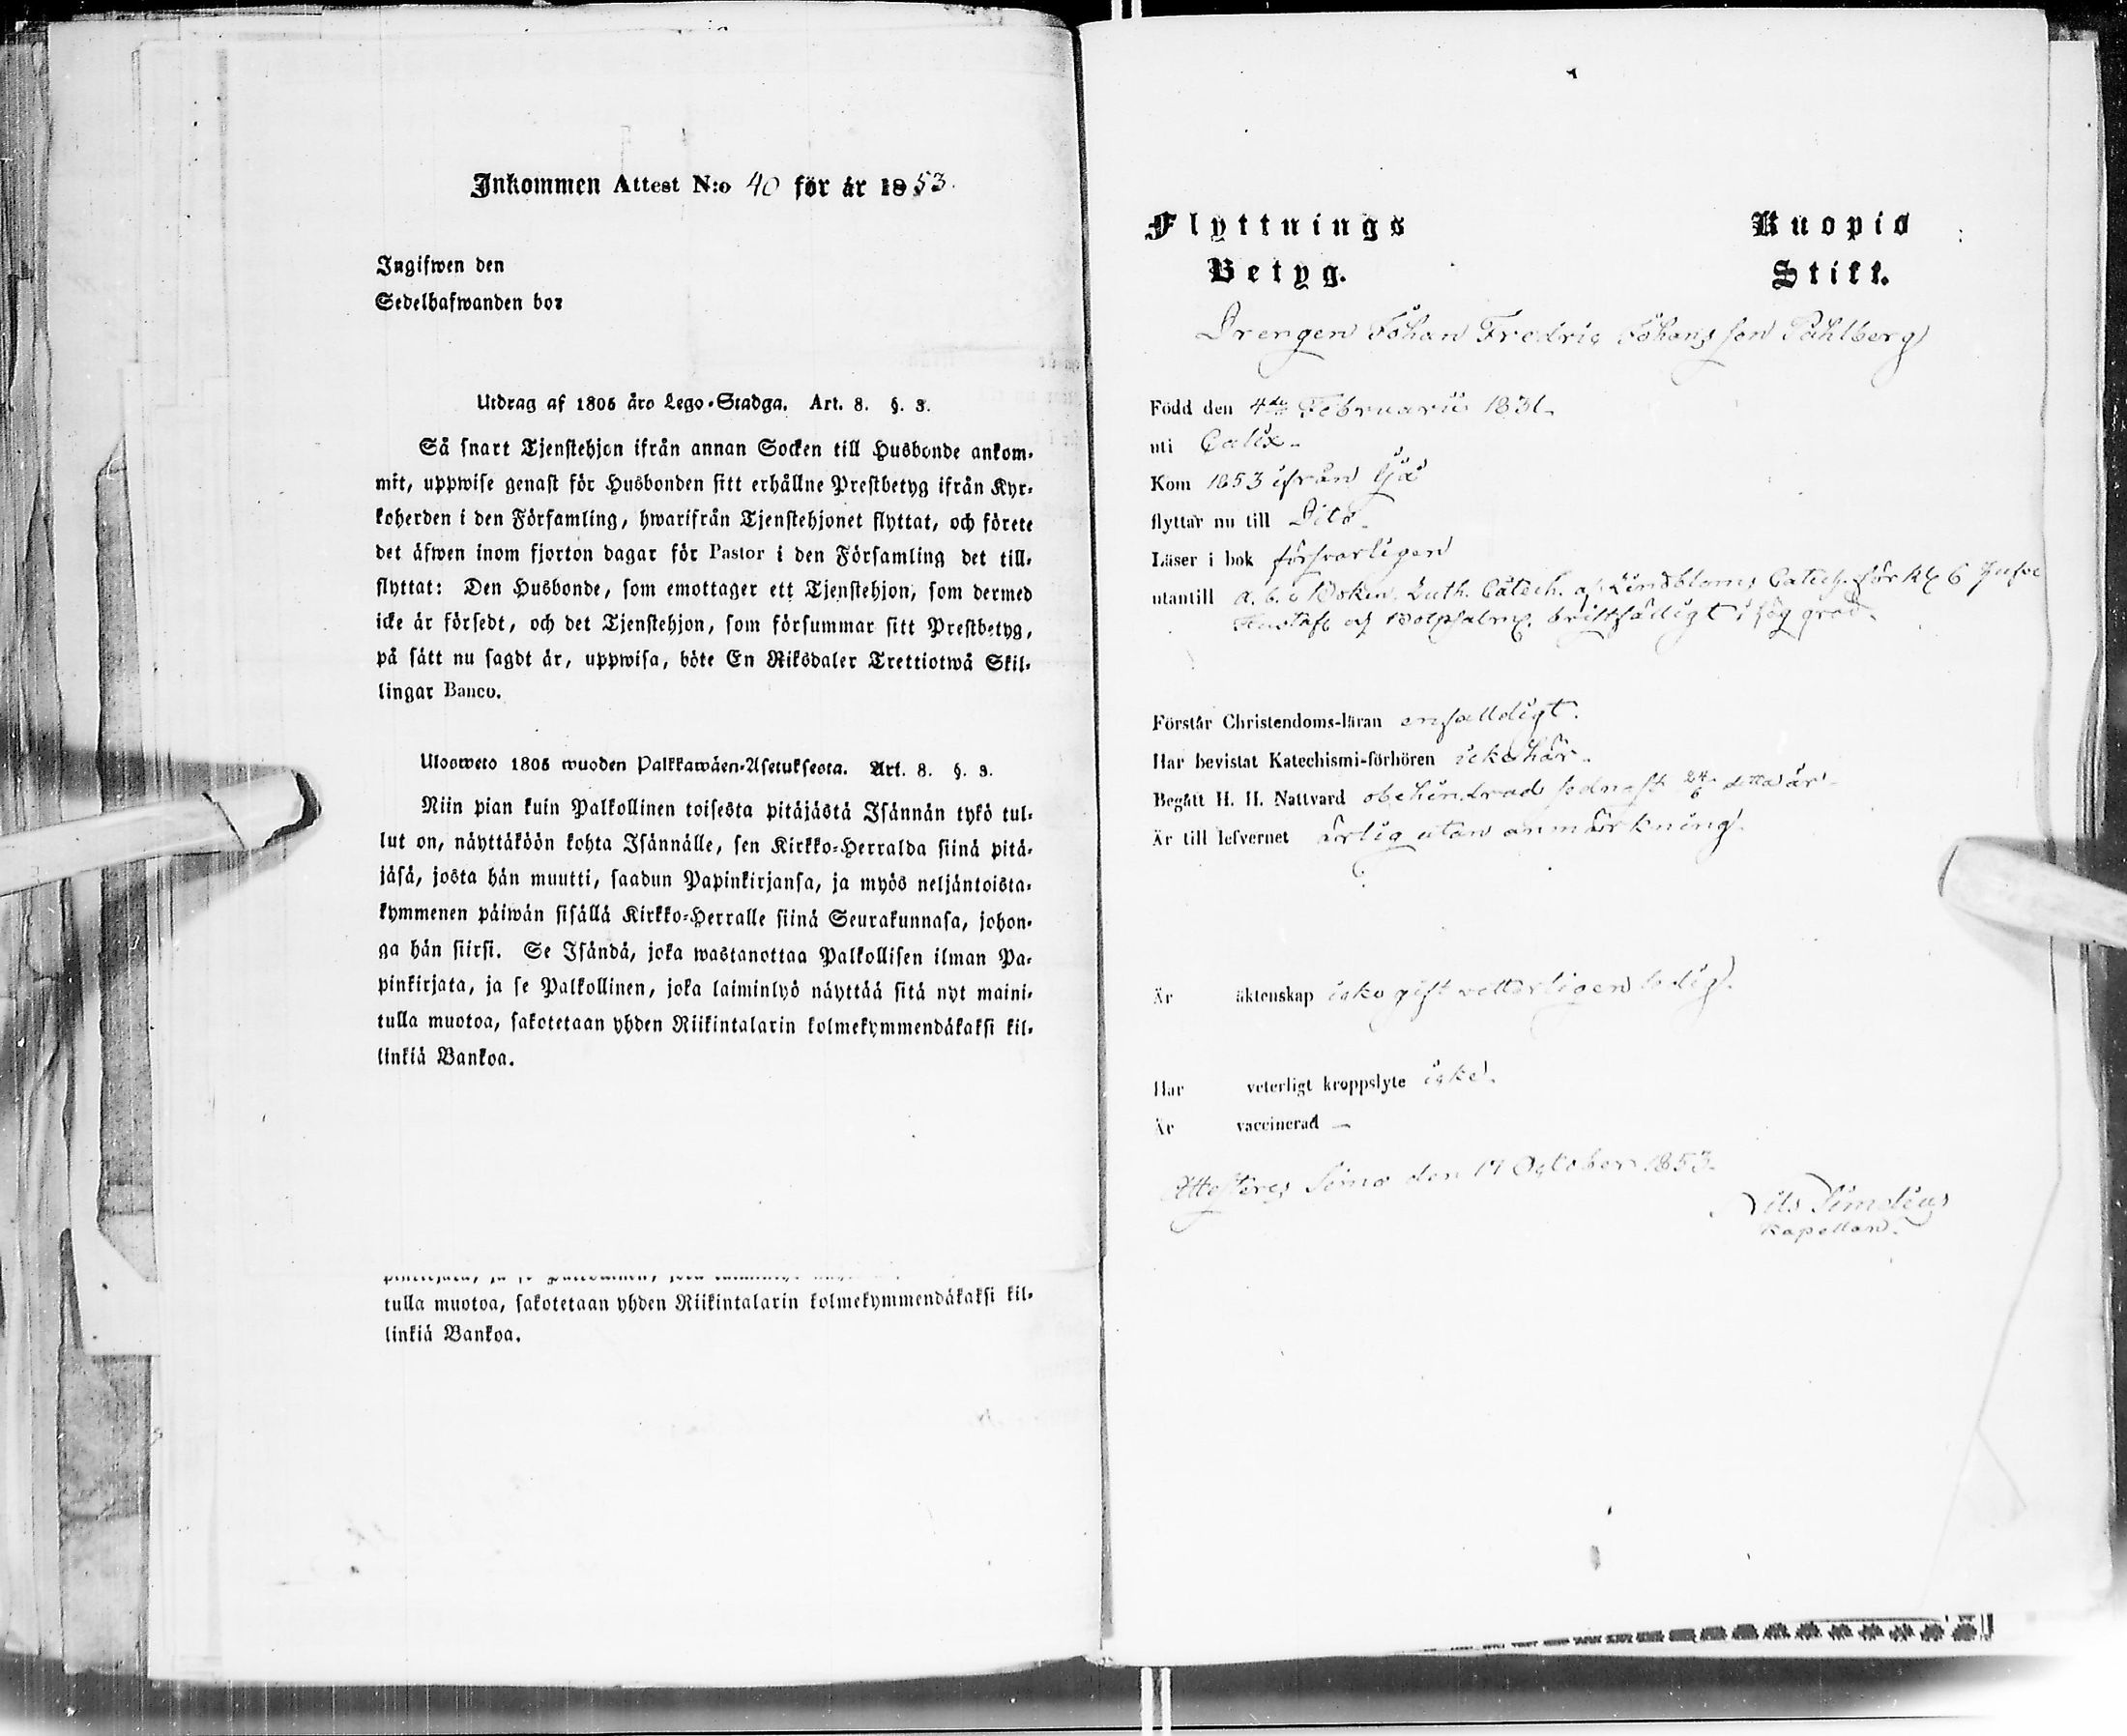 Inkommen Attest N:o 40 för år 1853.
Ingifwen den
Sedelhafwanden bor
Utdrag af 1805 åro Lego-Stadga. Art. 8. §. 3.
Så snart Tjenstehjon ifrån annan Socken till Husbonde ankom-
mit, uppwise genast för Husbonden sitt erhållne Prestbetyg ifrån Kyr-
koherden i den Församling, hwarifrån Tjenstehjonet flyttat, och förete
det äfwen inom fjorton dagar för Pastor i den Församling det till-
flyttat: Den Husbonde, som emottager ett Tjenstehjon, som dermed
icke är försedt, och det Tjenstehjon, som försummar sitt Prestbetyg,
på sått nu sagdt är, uppwisa, böte En Riksdaler Trettiotwå Skil-
lingar Banco.
Ulosweto 1805 wuoden Palkkawäen-Asetuksesta. Art. 8. §. 3.
Niin pian kuin Palkollinen toisesta pitäjästä Isännän tykö tul-
lut on, näyttäköön kohta Isännälle, sen Kirkko-Herralda siinä pitä-
jäsä, josta hän muutti, saadun Papinkirjansa, ja myös neljäntoista-
kymmenen päiwän sisällä Kirkko-Herralle siinä Seurakunnasa, johon-
ga hän siirsi. Se Isändä, joka wastanottaa Palkollisen ilman Pa-
pinkirjata, ja se Palkollinen, joka laiminlyö näyttää sitä nyt maini-
tulla muotoa, sakotetaan yhden Riikintalarin kolmekymmendäkaksi kil-
linkiä Bankoa.
tulla muotoa, sakotetaan yhden Riikintalarin kolmekymmendäkaksi kil-
linkiä Bankoa.
Flyttnings
Betyg.
Kuopio
Stift.
Drengen Johan Fredric Johansson Påhlberg
Född den 4de Februarii 1831.
uti Calix.
Kom 1853 ifrån Ijo
flyttar nu till Dito.
Läser i bok försvarligen
utantill a. b. c Boken. Luth. Catech. af Lindbloms Catech. förkl 6
och Botpsalmer bristfälligt i låg grad.
Förstår Christendoms-läran enfalldigt.
Har bevistat Katechismi-förhören icke här.
Begått H. H. Nattvard obehindrad sednast 24/6 detta år.
Är till lefvernet ärlig utan anmärkning.
Är äktenskap icke gift vetterligen ledig.
Har veterligt kroppslyte icke.
Är vaccinerad —
Attesteras Simo den 17 October 1853.
Nils Simelius
Kapellan.